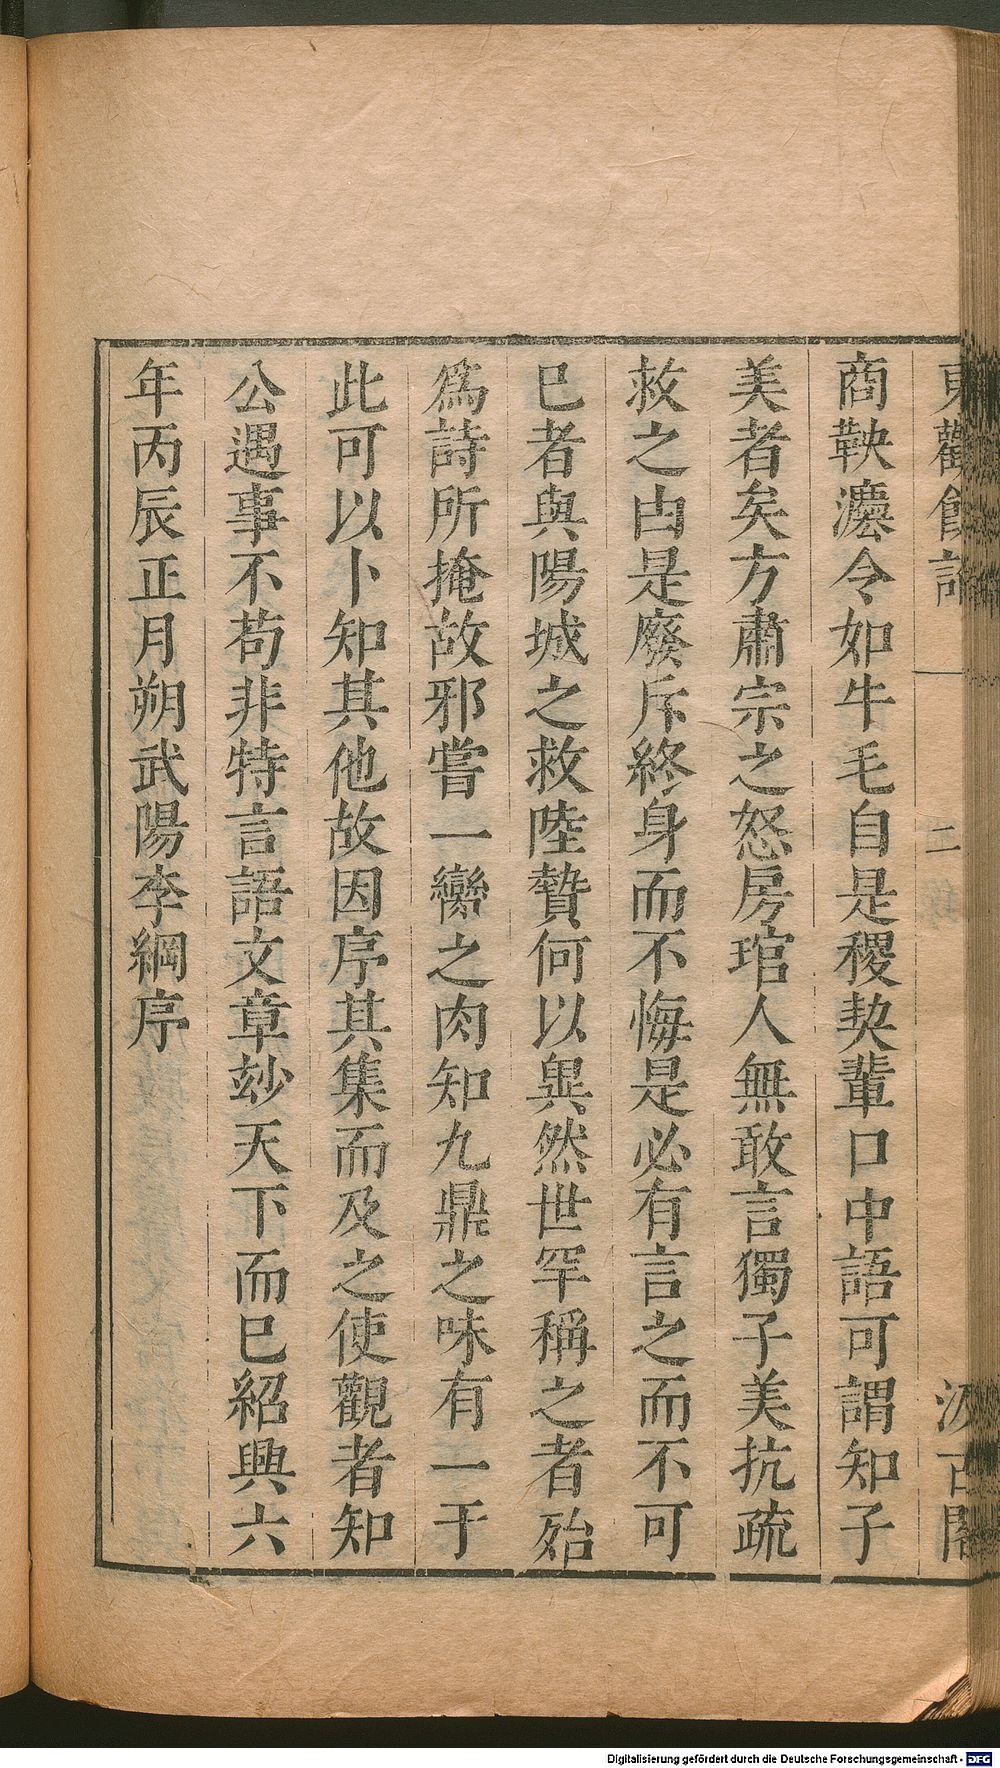 東觀餘論
二
汲古閣
商鞅灋令如牛毛自是稷契輩口中語可謂知子
美者矣方肅宗之怒房琯人無敢言獨子美抗疏
救之由是廢斥終身而不悔是必有言之而不可
已者與陽城之救陸贄何以異然世罕稱之者殆
爲詩所掩故邪嘗一臠之肉知九鼎之味有一于
此可以卜知其他故因序其集而及之使觀者知
公遇事不苟非特言語文章玅天下而已紹興六
年丙辰正月朔武陽李綱序
Digitalisierung gefördert durch die Deutsche Forschungsgemeinschaft - DFG